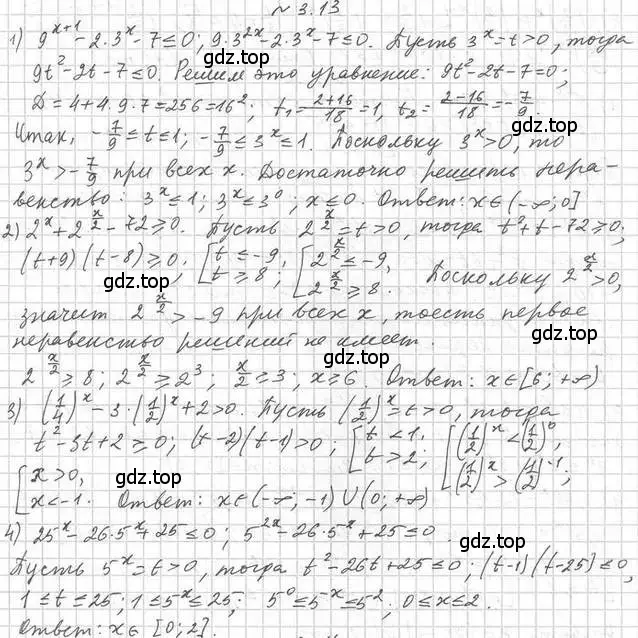 № 3.13
1) 9^(x+1) - 2·3^x - 7 ≤ 0; 9·3^(2x) - 2·3^x - 7 ≤ 0. Пусть 3^x = t > 0, тогда
9t² - 2t - 7 ≤ 0. Решим это уравнение: 9t² - 2t - 7 = 0;
D = 4 + 4·9·7 = 256 = 16²; t₁ = (2+16)/18 = 1, t₂ = (2-16)/18 = -7/9.
Итак, -7/9 ≤ t ≤ 1; -7/9 ≤ 3^x ≤ 1. Поскольку 3^x > 0, то
3^x > -7/9 при всех x. Достаточно решить нера-
венство: 3^x ≤ 1; 3^x ≤ 3^0; x ≤ 0. Ответ: x ∈ (-∞; 0]
2) 2^x + 2^(x/2) - 72 ≥ 0. Пусть 2^(x/2) = t > 0, тогда t² + t - 72 ≥ 0;
(t+9)(t-8) ≥ 0; [t ≤ -9, t ≥ 8; [2^(x/2) ≤ -9, 2^(x/2) ≥ 8. Поскольку 2^(x/2) > 0,
gdz.top gdz.top gdz.top
значит 2^(x/2) > -9 при всех x, то есть первое
неравенство решений не имеет.
2^(x/2) ≥ 8; 2^(x/2) ≥ 2³; x/2 ≥ 3; x ≥ 6. Ответ: x ∈ [6; +∞)
3) (1/4)^x - 3·(1/2)^x + 2 > 0. Пусть (1/2)^x = t > 0, тогда
t² - 3t + 2 ≥ 0; (t-2)(t-1) > 0; [t < 1, t > 2; [(1/2)^x < (1/2)^0, (1/2)^x > (1/2)^(-1);
gdz.top gdz.top gdz.top
[x > 0, x < -1. Ответ: x ∈ (-∞; -1) ∪ (0; +∞)
4) 25^x - 26·5^x + 25 ≤ 0; 5^(2x) - 26·5^x + 25 ≤ 0.
Пусть 5^x = t > 0, тогда t² - 26t + 25 ≤ 0; (t-1)(t-25) ≤ 0,
gdz.top gdz.top gdz.top
1 ≤ t ≤ 25; 1 ≤ 5^x ≤ 25; 5^0 ≤ 5^x ≤ 5²; 0 ≤ x ≤ 2.
Ответ: x ∈ [0; 2].